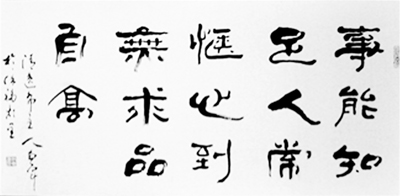 事能知
足人常
愜心到
無求品
自高